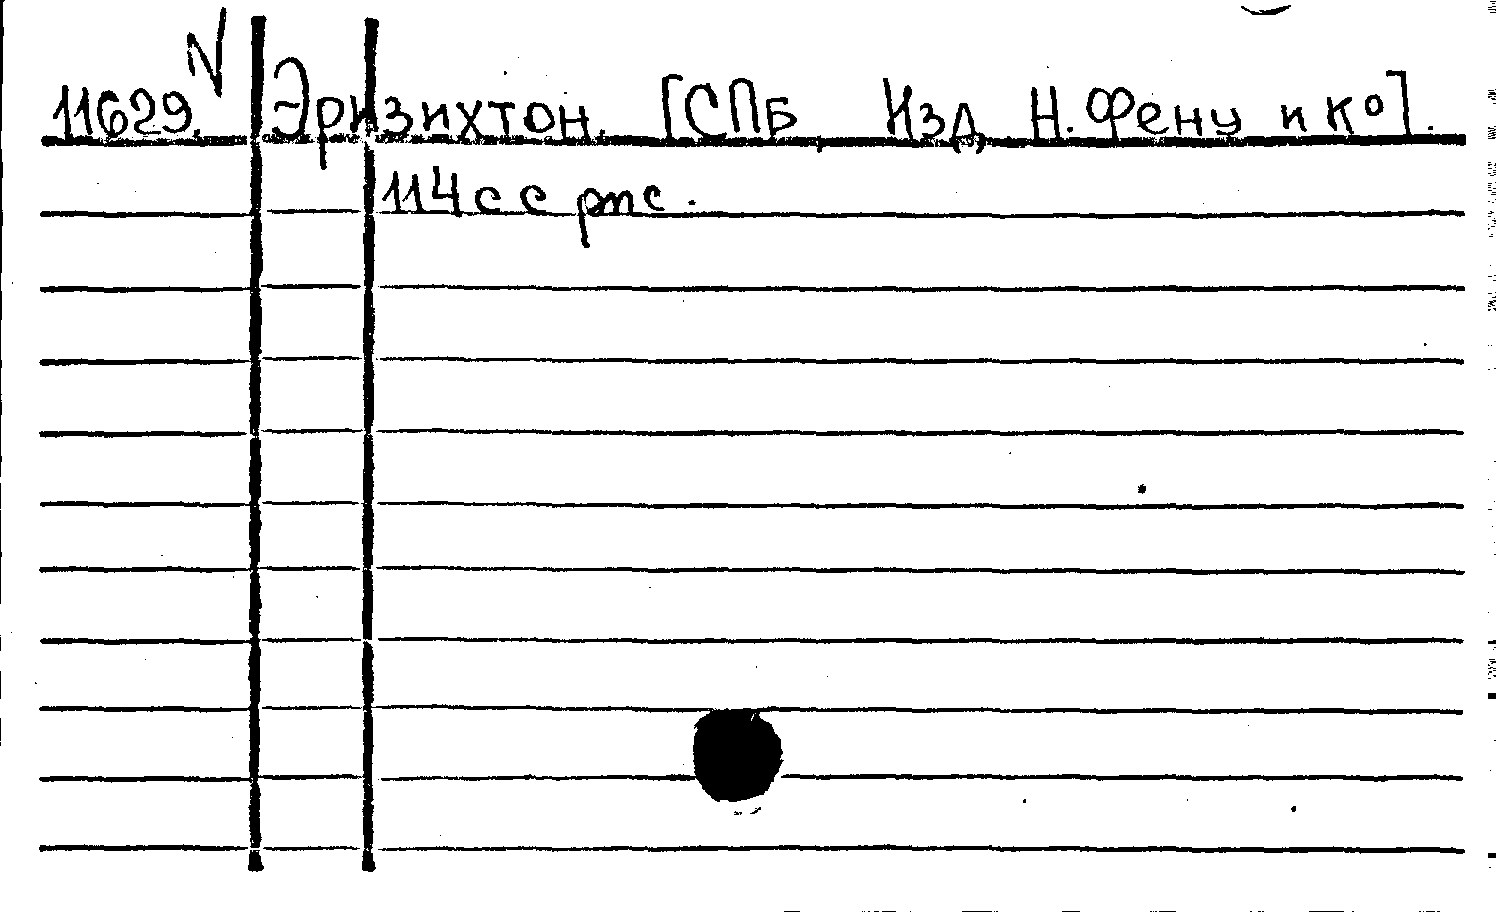 11629. N Эризихтон. [СПБ, Изд. Н. Фену и Ко].
114 с с рис.